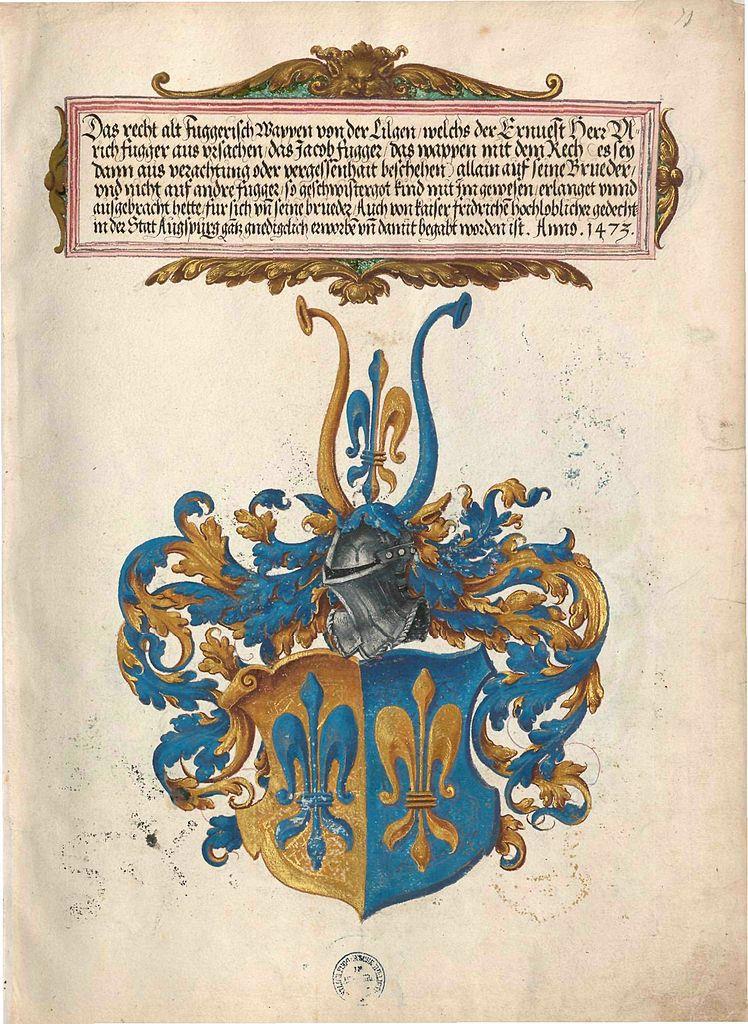 Das recht alt Fuggerisch Wappen von der Lilgen / welchs der Ernuest Herr Vl-
rich fugger aus vrsachen / das Jacob fugger / das wappen mit dem Rech / es sey
dann aus verachtung oder vergessenhait beschehen / allain auf seine Brueder /
vnd nicht auf andre fugger / so geschwistergot kind mit jm gewesen / erlanget vnnd
ausgebracht hette / für sich vn̄ seine brueder / Auch von kaiser fridrichen hochloblicher gedecht
in der Stat Augspurg gātz gnedigclich erworbē vn̄ damit begabt worden ist. Anno. 1473.